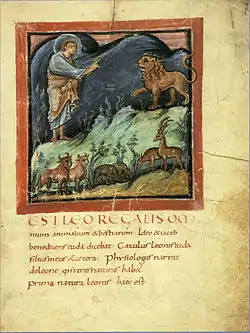 EST LEO REGALIS OM
nium animalium & bestiarum. Ideo & iacob
benedicens iuda dicebat. Catulus leonis iuda
filius meus & cetera. Physiologus narrat
de leone qui tres naturas hab&
prima natura leonis haec est.